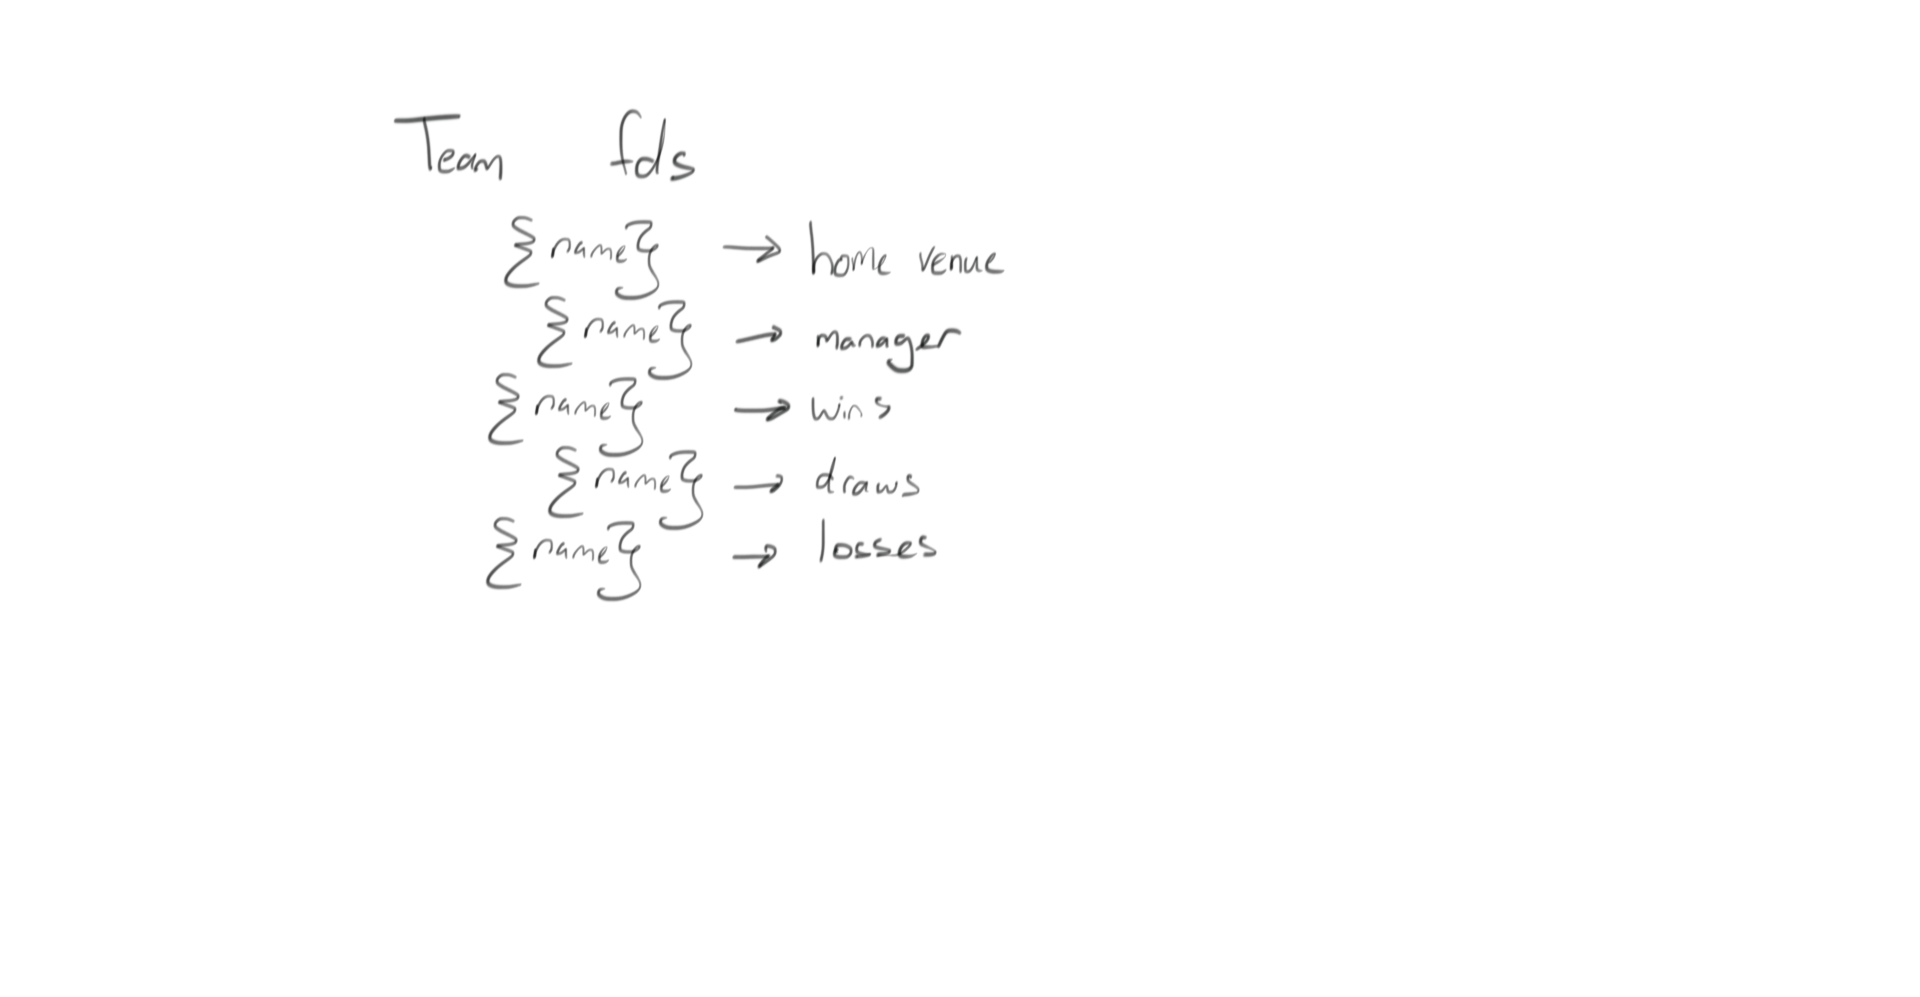 Team fds
{name} → home venue
{name} → manager
{name} → wins
{name} → draws
{name} → losses